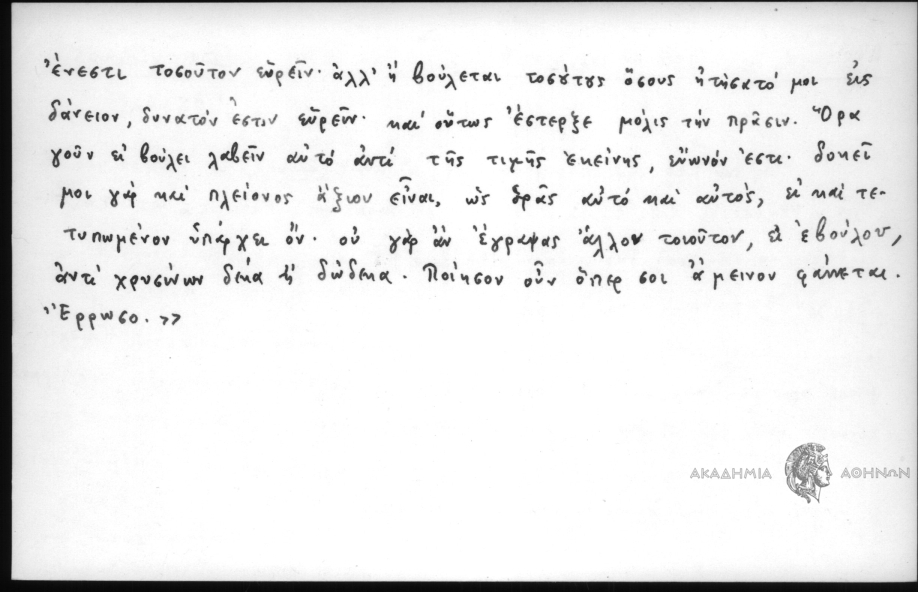 ἔνεστι τοσοῦτον εὑρεῖν· ἀλλ' ἢ βούλεται τοσούτους ὅσους ᾐτήσατό μοι εἰς
δάνειον, δυνατόν ἐστιν εὑρεῖν· καὶ οὕτως ἔστερξε μόλις τὴν πρᾶσιν. Ὅρα
γοῦν εἰ βούλει λαβεῖν αὐτὸ ἀντὶ τῆς τιμῆς ἐκείνης, εὔωνόν ἐστι· δοκεῖ
μοι γὰρ καὶ πλείονος ἄξιον εἶναι, ὡς ὁρᾷς αὐτὸ καὶ αὐτός, εἰ καὶ τε-
τυπωμένον ὑπάρχει ὄν· οὐ γὰρ ἂν ἔγραψας ἄλλον τοιοῦτον, εἰ ἐβούλου,
ἀντὶ χρυσίνων δέκα ἢ δώδεκα. Ποίησον οὖν ὅπερ σοι ἄμεινον φαίνεται.
Ἔρρωσο. >>
ΑΚΑΔΗΜΙΑ ΑΘΗΝΩΝ